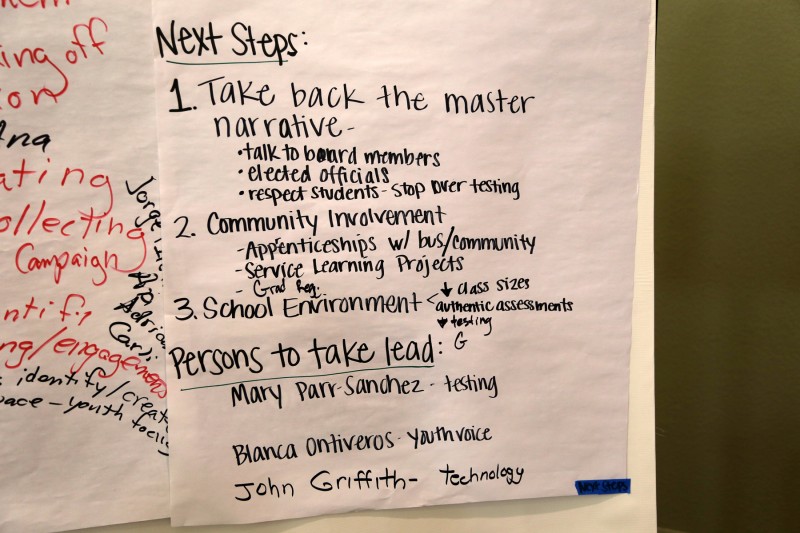 ing off
ating
ollecting
Campaign
ntify
ng/engagement
identify/create
pace - youth focus
Jorge
Next Steps:
1. Take back the master
narrative-
• talk to board members
• elected officials
• respect students - stop over testing
2. Community Involvement
- Apprenticeships w/ bus/community
- Service Learning Projects
- Grad Req.
3. School Environment < ↓ class sizes
authentic assessments
↓ testing
G
Persons to take lead:
Mary Parr-Sanchez - testing
Blanca Ontiveros - youth voice
John Griffith - technology
Next Steps